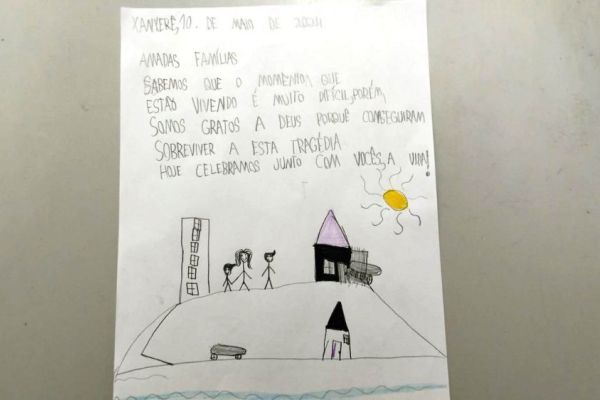 XANXERÊ, 10. DE MAIO DE 2024
AMADAS FAMÍLIAS
SABEMOS QUE O MOMENTO, QUE
ESTÃO VIVENDO É MUITO DIFÍCIL, PORÉM,
SOMOS GRATOS A DEUS PORQUÊ CONSEGUIRAM
SOBREVIVER A ESTA TRAGÉDIA
HOJE CELEBRAMOS JUNTO COM VOCÊS, A VIDA!